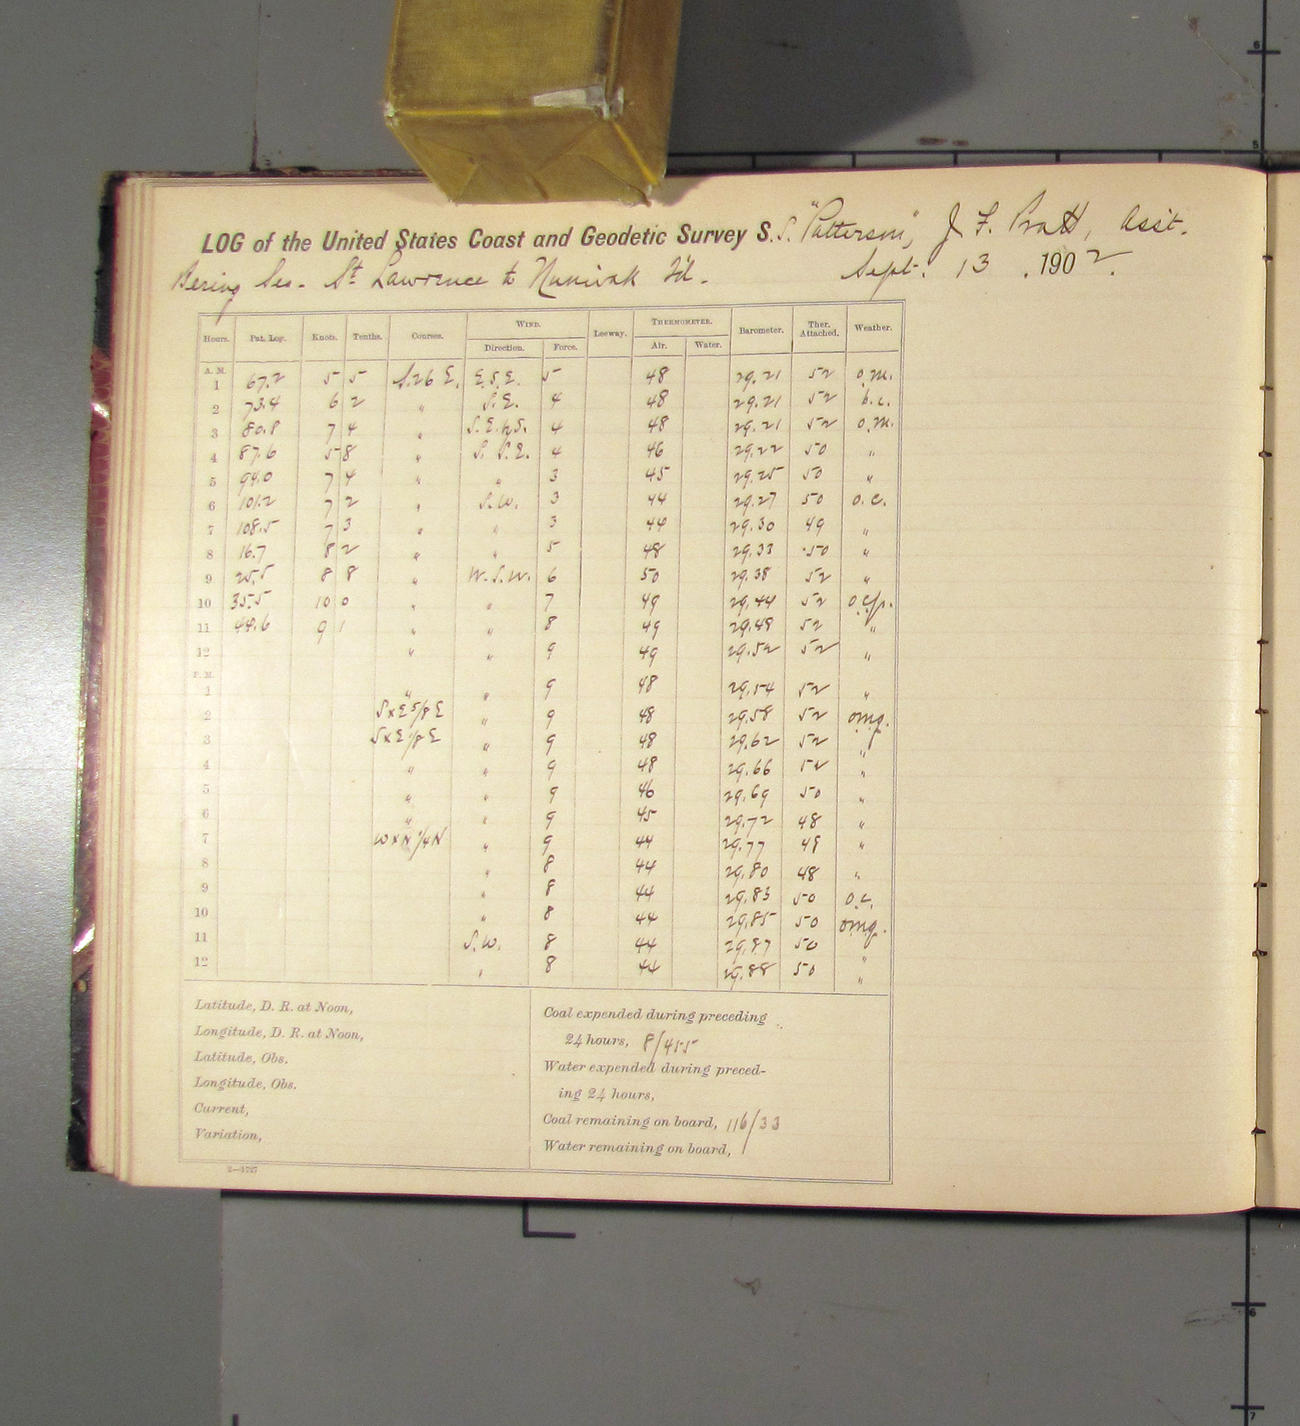 LOG of the United States Coast and Geodetic Survey S. S. "Patterson", J. F. Pratt, Asst.
Bering Sea - St Lawrence to Nunivak Id. Sept. 13, 1902.
Hours. Pat. Log. Knots. Tenths. Courses. WIND. Direction. Force. Leeway. THERMOMETER. Air. Water. Barometer. Ther. Attached. Weather.
A. M.
1 67.2 5 5 S.26 E. E.S.E. 5 48 29.21 52 o.m.
2 73.4 6 2 " S.E. 4 48 29.21 52 b.c.
3 80.8 7 4 " S.E.byS. 4 48 29.21 52 o.m.
4 87.6 5 8 " S.S.E. 4 46 29.22 50 "
5 94.0 7 4 " " 3 45 29.25 50 "
6 101.2 7 2 " S.W. 3 44 29.27 50 o.c.
7 108.5 7 3 " " 3 44 29.30 49 "
8 16.7 8 2 " " 5 48 29.33 50 "
9 25.5 8 8 " W.S.W. 6 50 29.38 52 "
10 35.5 10 0 " " 7 49 29.44 52 o.c.p.
11 44.6 9 1 " " 8 49 29.48 52 "
12 " " 9 49 29.52 52 "
P. M.
1 " " 9 48 29.54 52 "
2 SxE 5/8 E " 9 48 29.58 52 omq.
3 SxE 1/8 E " 9 48 29.62 52 "
4 " " 9 48 29.66 52 "
5 " " 9 46 29.69 50 "
6 " " 9 45 29.72 48 "
7 WxN 1/4 N " 9 44 29.77 48 "
8 " 8 44 29.80 48 "
9 " 8 44 29.83 50 o.c.
10 " 8 44 29.85 50 omq.
11 S.W. 8 44 29.87 50 "
12 " 8 44 29.88 50 "
Latitude, D. R. at Noon,
Longitude, D. R. at Noon,
Latitude, Obs.
Longitude, Obs.
Current,
Variation,
Coal expended during preceding
24 hours, 8/455
Water expended during preced-
ing 24 hours,
Coal remaining on board, 116/33
Water remaining on board,
2—1727
6
5
6
7